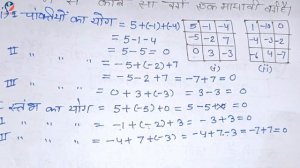 कौन सा वर्ग
I पंक्तियों का योग = 5+(-1)+(-4)
= 5-1-4
= 5-5 = 0
5 -1 -4
-5 -2 7
0 3 -3
(i)
1 -10 0
-4 -3 -2
-6 4 -7
(ii)
II " " = -5+(-2)+7
= -5-2+7 = -7+7 = 0
III " " = 0+3+(-3) = 3-3 = 0
I स्तंभ का योग = 5+(-5)+0 = 5-5+0 = 0
II " " = -1+(-2)+3 = -3+3 = 0
III " " = -4+7+(-3) = -4+7-3 = -7+7 = 0